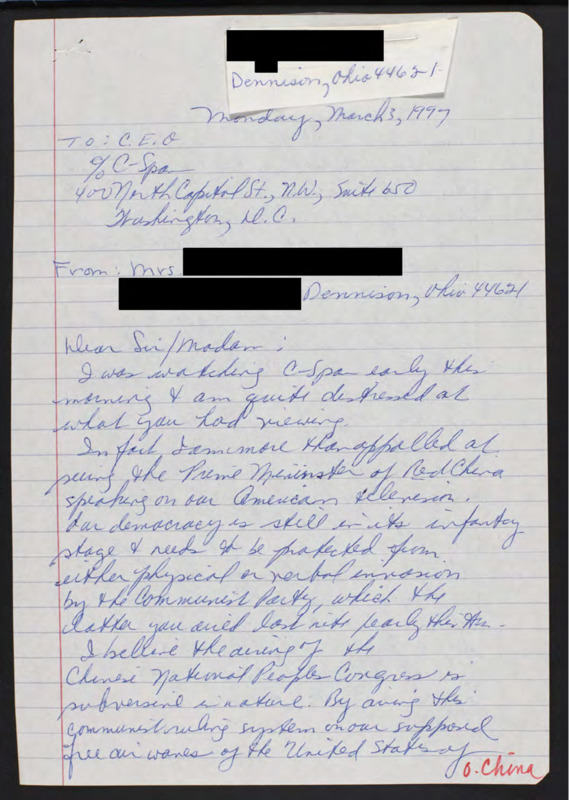 Dennison, Ohio 44621
Monday, March 3, 1997
To: C.E.O
% C-Spa
400 North Capitol St., N.W., Suite 650
Washington, D.C.
From: Mrs.
Dennison, Ohio 44621
Dear Sir/Madam:
I was watching C-Spa early this
morning & am quite distressed at
what you had viewing.
In fact, I am more than appalled at
seeing the Prime Meninster of Red China
speaking on our American television.
Our democracy is still in its infantcy
stage & needs to be protected from
either physical or verbal invasion
by the Communist Party, which the
latter you aired last nite / early this
I believe the airing of the
Chinese National Peoples Congress is
subversive in nature. By airing this
communist ruling system on our supposed
free air waves of the United States of
O. China